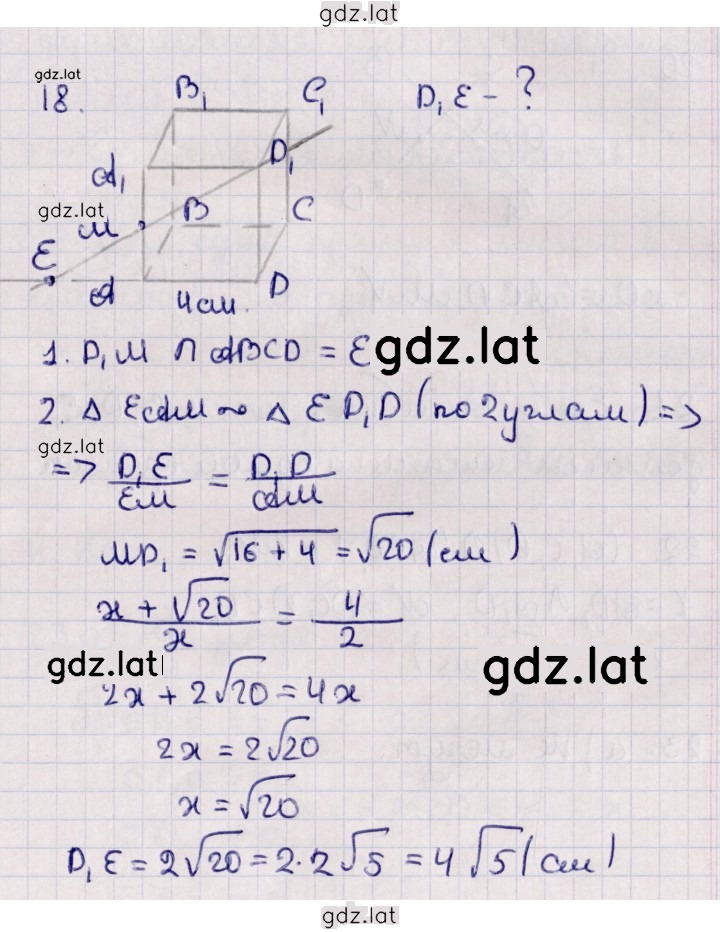 gdz.lat
gdz.lat
18.
B₁ C₁ D₁E - ?
A₁ D₁
gdz.lat
M B C
E
A 4см. D
1. D₁M ∩ ABCD = E
gdz.lat
2. Δ EAM ~ Δ ED₁D (по 2 углам) =>
gdz.lat
=> D₁E/EM = D₁D/AM
MD₁ = √16 + 4 = √20 (см)
x + √20/x = 4/2
gdz.lat
gdz.lat
2x + 2√20 = 4x
2x = 2√20
x = √20
D₁E = 2√20 = 2·2√5 = 4√5 (см)
gdz.lat